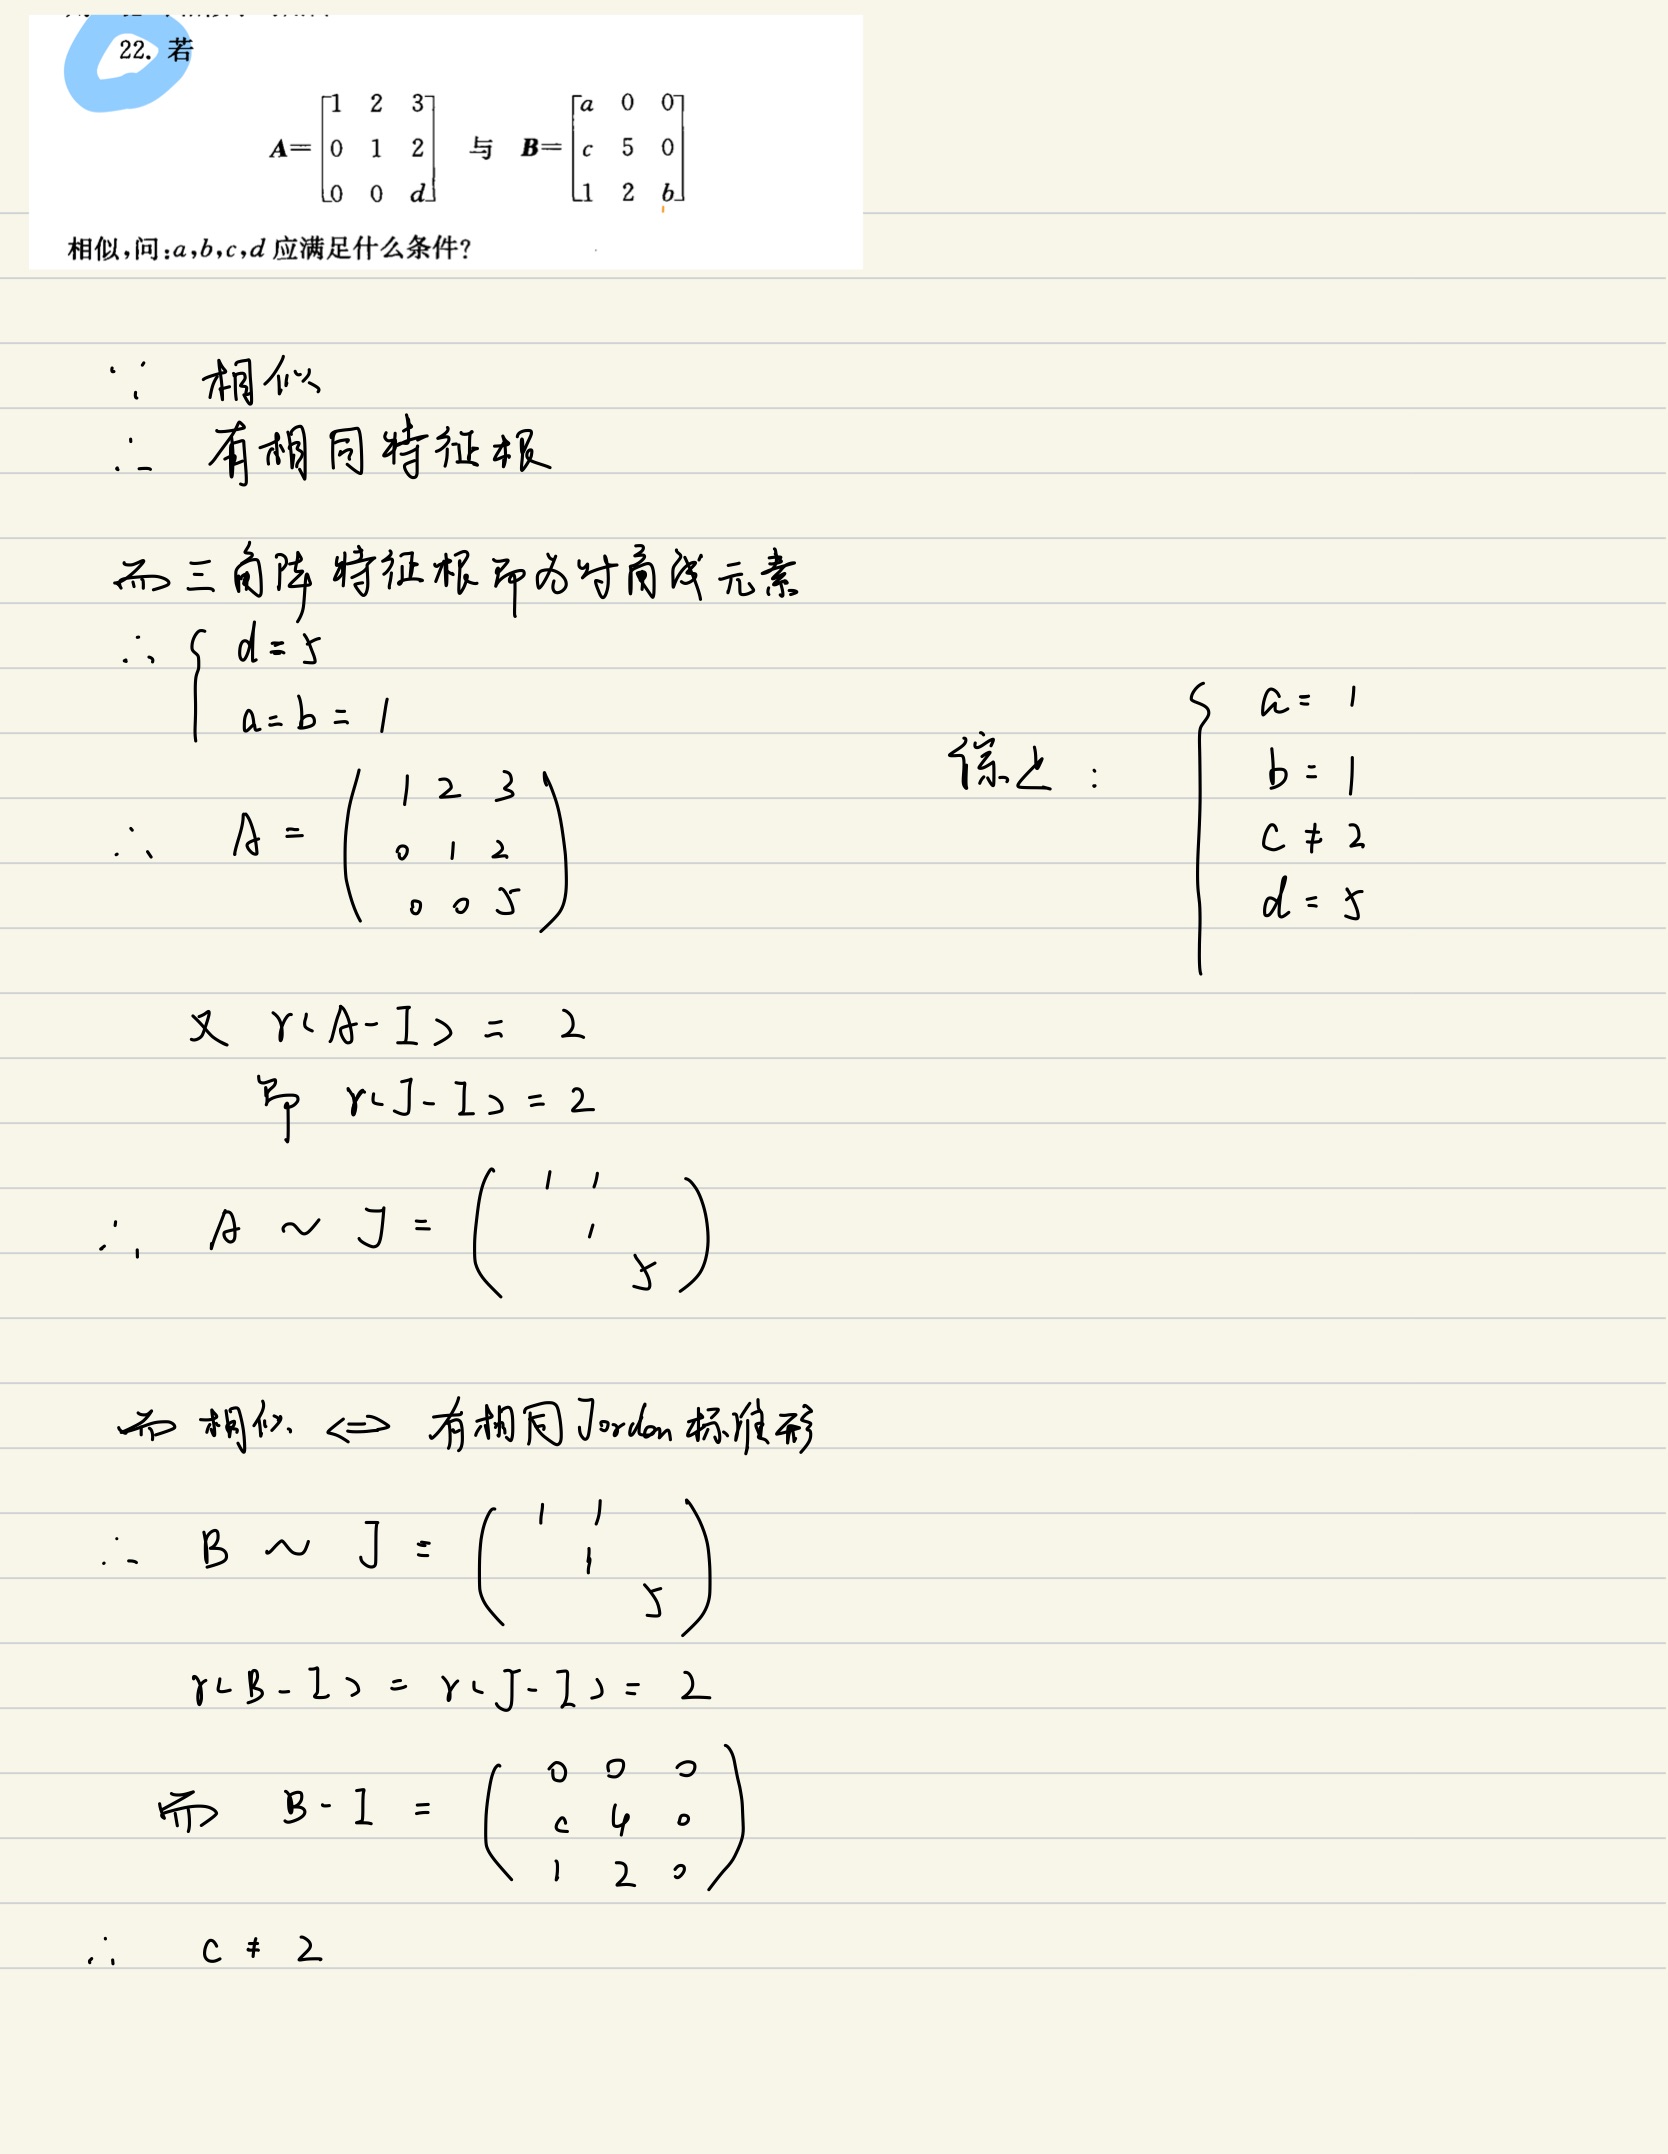 22. 若
A=[1 2 3
0 1 2
0 0 d] 与 B=[a 0 0
c 5 0
1 2 b]
相似,问:a,b,c,d 应满足什么条件?
∵ 相似
∴ 有相同特征根
而三角阵特征根即为对角线元素
∴ { d = 5
a = b = 1
∴ A = ( 1 2 3
0 1 2
0 0 5 )
又 r(A-I) = 2
即 r(J-I) = 2
∴ A ~ J = ( 1 1
1
5 )
而相似 <=> 有相同Jordan标准形
∴ B ~ J = ( 1 1
1
5 )
r(B-I) = r(J-I) = 2
而 B-I = ( 0 0 0
c 4 0
1 2 0 )
∴ c ≠ 2
综上 : { a = 1
b = 1
c ≠ 2
d = 5